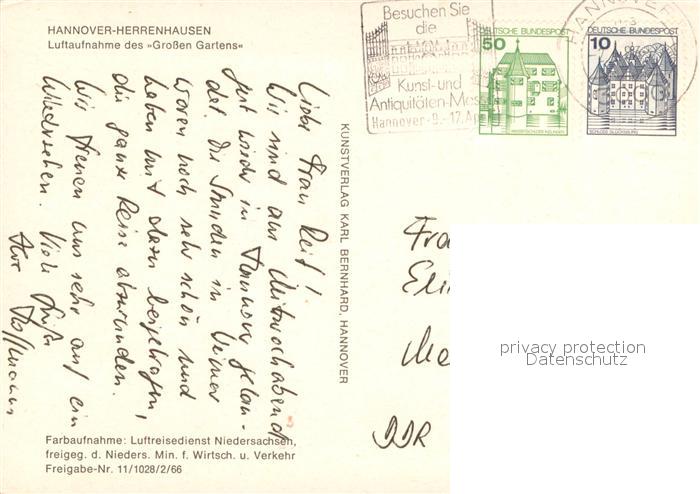 HANNOVER-HERRENHAUSEN
Luftaufnahme des »Großen Gartens«
Besuchen Sie
die
Kunst-und
Antiquitäten-Messe
Hannover - 9. - 17. Apr
50 DEUTSCHE BUNDESPOST
WASSERSCHLOSS INZLINGEN
10 DEUTSCHE BUNDESPOST
SCHLOSS GLÜCKSBURG
HANNOVER
Liebe Frau Reif!
Wir sind am Mittwochabend
gut wieder in Hannover gelan-
det. Die Stunden in Weimar
waren noch sehr schön und
haben mit dazu beigetragen,
die ganze Reise abzurunden.
Wir freuen uns sehr auf ein
Wiedersehen. Viele Grüße
Ihre Hoffmann
KUNSTVERLAG KARL BERNHARD, HANNOVER
Fra
Eli
DDR
privacy protection
Datenschutz
Farbaufnahme: Luftreisedienst Niedersachsen,
freigeg. d. Nieders. Min. f. Wirtsch. u. Verkehr
Freigabe-Nr. 11/1028/2/66